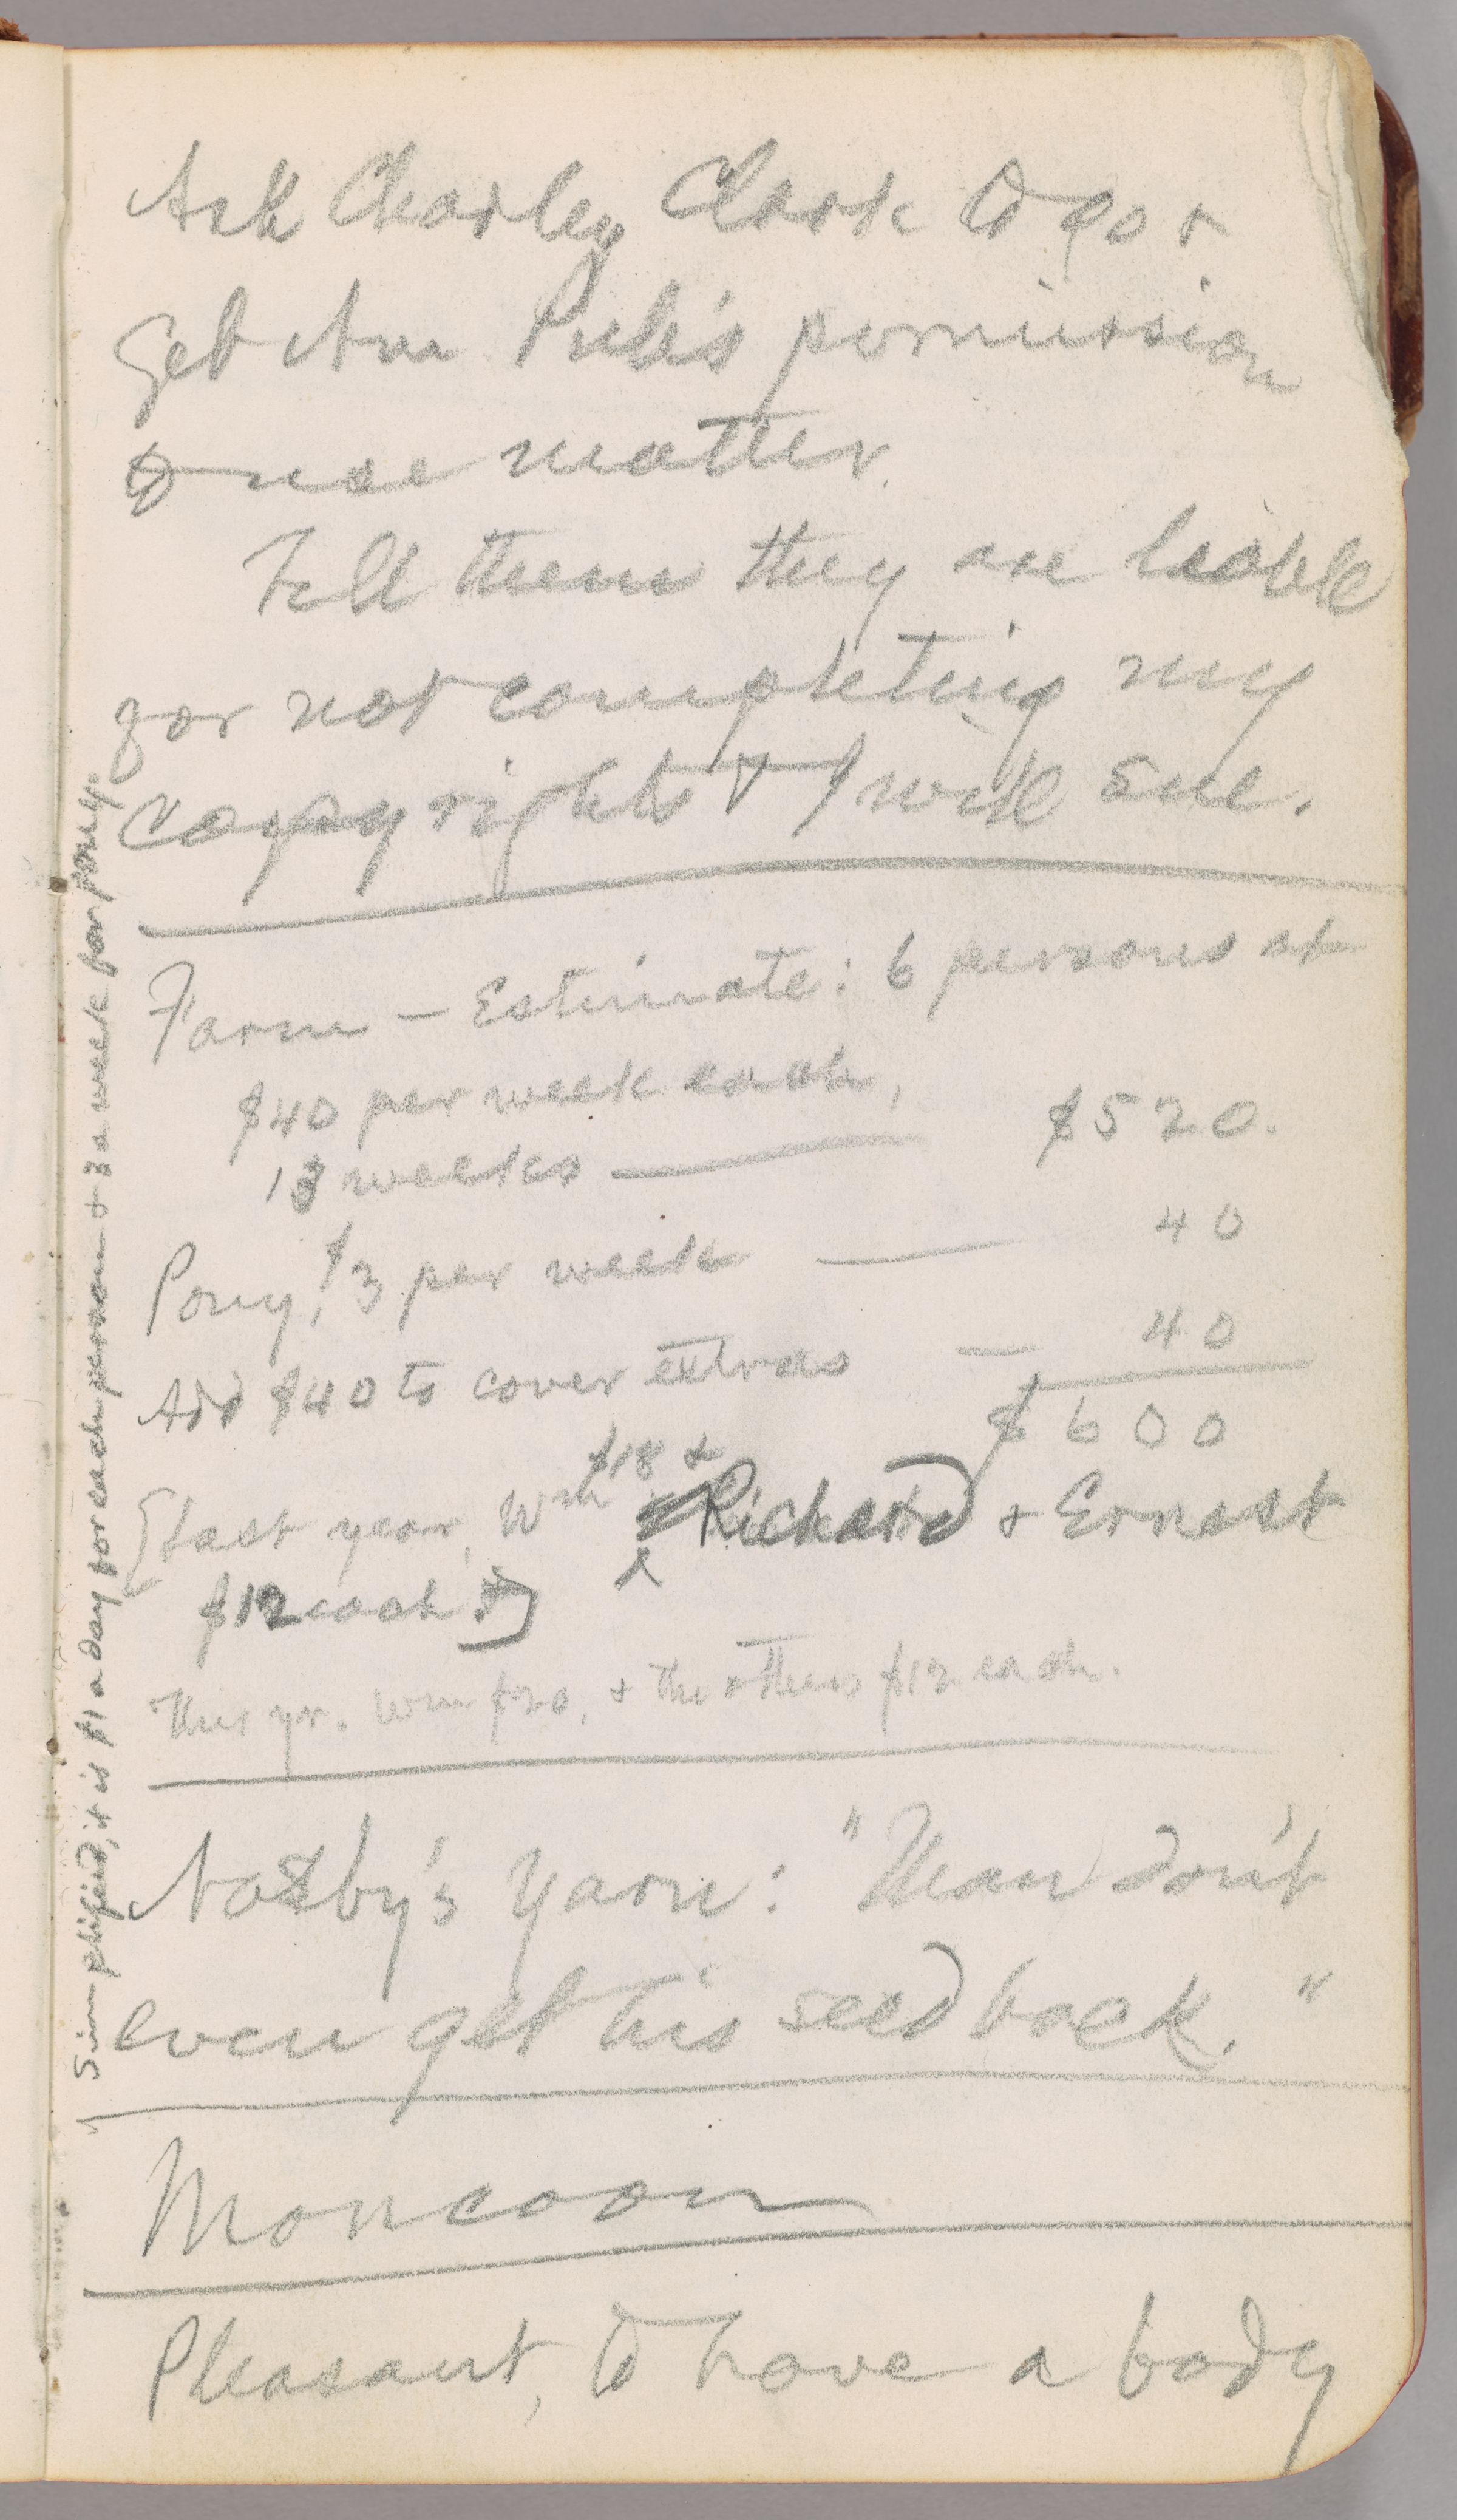 Ask Charley Clark to go &
get Am Pub's permission
to use matter.
Tell them they are liable
for not completing my
copyrights & I will sue.
Farm — Estimate: 6 persons at
$40 per week each,
13 weeks — $520.
Pony, $3 per week — 40
Add $40 to cover extras — 40
$600
[Last year, Wm $18 & Richard & Ernest
$12 each.]
This yr. Wm $20, & the others $12 each.
Nasby's yarn: "Man don't
even get his seed back."
Moncoon
Pleasant, to have a body
Simplified, it is $1 a day for each person & 3 a week for pony.